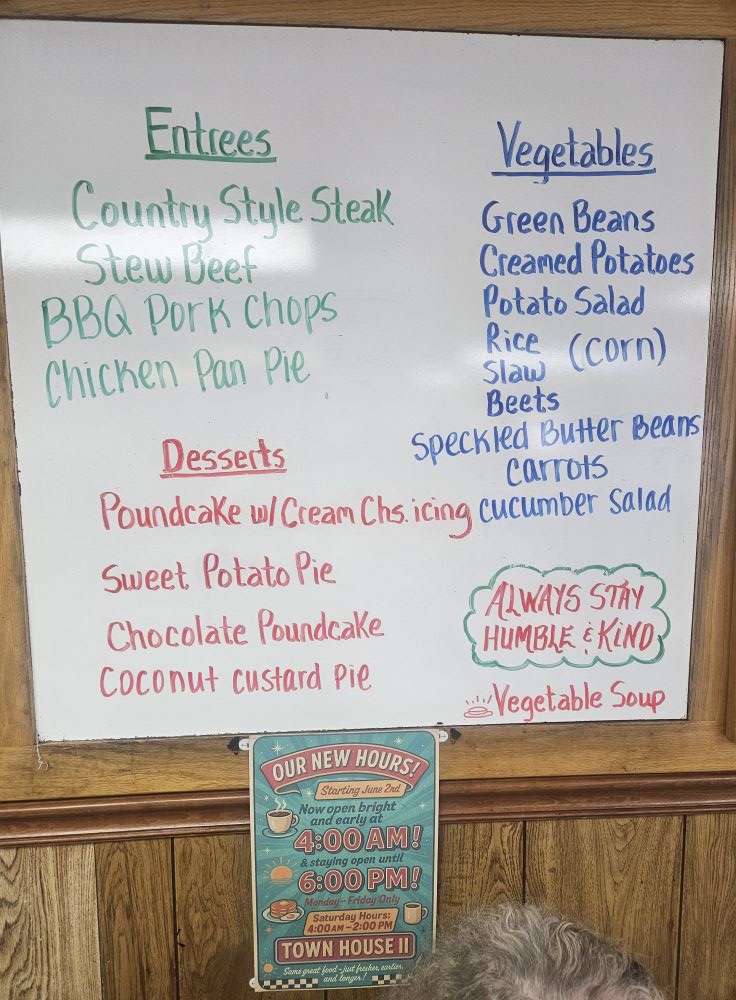 Entrees
Country Style Steak
Stew Beef
BBQ Pork Chops
Chicken Pan Pie
Desserts
Poundcake w/ Cream Chs. icing
Sweet Potato Pie
Chocolate Poundcake
Coconut custard Pie
Vegetables
Green Beans
Creamed Potatoes
Potato Salad
Rice (corn)
Slaw
Beets
Speckled Butter Beans
carrots
cucumber Salad
ALWAYS STAY
HUMBLE & KIND
Vegetable Soup
OUR NEW HOURS!
Starting June 2nd
Now open bright
and early at
4:00 AM!
& staying open until
6:00 PM!
Monday–Friday Only
Saturday Hours:
4:00 AM – 2:00 PM
TOWN HOUSE II
Same great food – just fresher, earlier,
and longer!